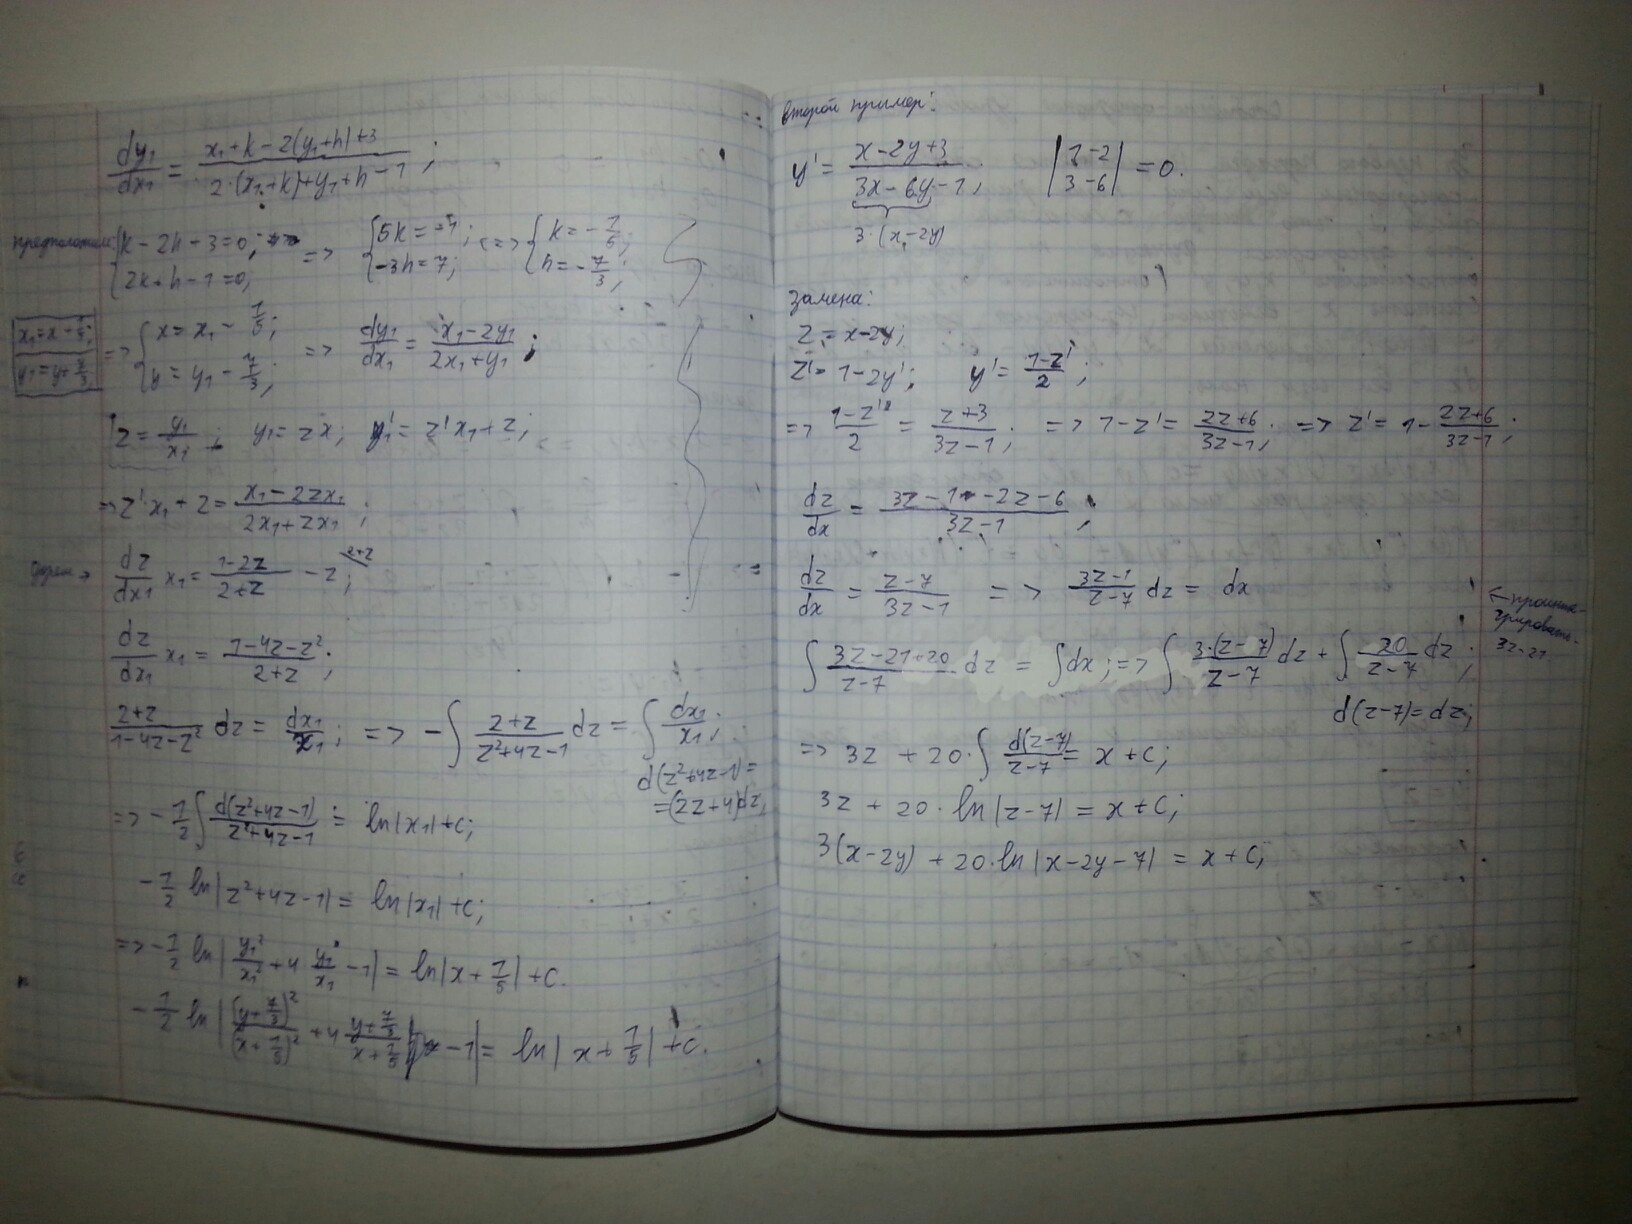 dy₁/dx₁ = (x₁+k-2(y₁+h)+3)/(2·(x₁+k)+y₁+h-1);
{k-2h+3=0; 2k+h-1=0; => {5k=-1; -3h=7; <=> {k=-1/5; h=-7/3;
x₁=x+1/5; y₁=y+7/3; => {x=x₁-1/5; y=y₁-7/3; => dy₁/dx₁ = (x₁-2y₁)/(2x₁+y₁);
z=y₁/x₁; y₁=zx; y₁'=z'x₁+z;
=> z'·x₁+z = (x₁-2zx₁)/(2x₁+zx₁);
dz/dx₁ x₁ = (1-2z)/(2+z) - z;
dz/dx₁ x₁ = (1-4z-z²)/(2+z);
(2+z)/(1-4z-z²) dz = dx₁/x₁; => -∫ (2+z)/(z²+4z-1) dz = ∫ dx₁/x₁;
d(z²+4z-1)=
=(2z+4)dz;
=> -1/2 ∫ d(z²+4z-1)/(z²+4z-1) = ln|x₁|+c;
-1/2 ln|z²+4z-1| = ln|x₁|+c;
=> -1/2 ln|y₁²/x₁²+4·y₁/x₁-1| = ln|x+1/5|+c.
-1/2 ln|(y+7/3)²/(x+1/5)²+4 (y+7/3)/(x+1/5) -1| = ln|x+1/5|+c.
второй пример:
y' = (x-2y+3)/(3x-6y-1); |1 -2; 3 -6| = 0.
3·(x-2y)
Замена:
z=x-2y;
z'=1-2y'; y'=(1-z')/2;
=> (1-z')/2 = (z+3)/(3z-1); => 1-z' = (2z+6)/(3z-1); => z' = 1-(2z+6)/(3z-1);
dz/dx = (3z-1-2z-6)/(3z-1);
dz/dx = (z-7)/(3z-1) => (3z-1)/(z-7) dz = dx
← проинте-
грировать.
3z-21
∫ (3z-21+20)/(z-7) dz = ∫dx; => ∫ 3·(z-7)/(z-7) dz + ∫ 20/(z-7) dz;
d(z-7)=dz;
=> 3z + 20·∫ d(z-7)/(z-7) = x+c;
3z + 20·ln|z-7| = x+c;
3(x-2y) + 20·ln|x-2y-7| = x+c;